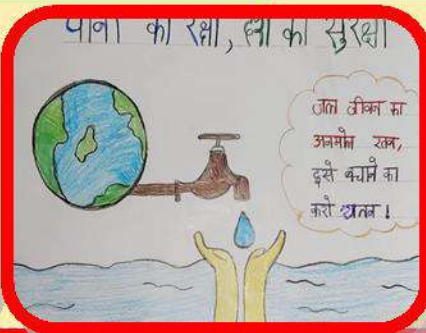 पानी की रक्षा, की सुरक्षा
जल जीवन का
अनमोल रतन,
इसे बचाने का
करो यतन !